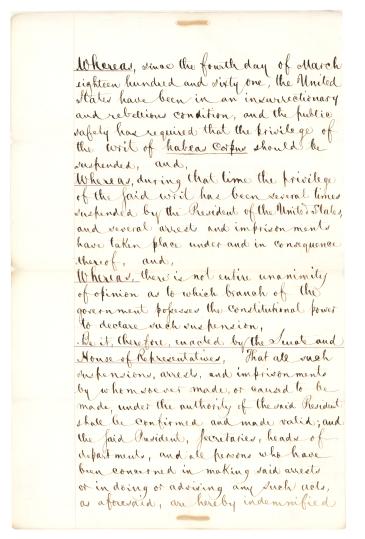 Whereas, since the fourth day of March
eighteen hundred and sixty one, the United
States have been in an insurrectionary
and rebellious condition, and the public
safety has required that the privilege of
the writ of habeas corpus should be
suspended, and,
Whereas, during that time the privilege
of the said writ has been several times
suspended by the President of the United States,
and several arrests and imprisonments
have taken place under and in consequence
thereof, and,
Whereas, there is not entire unanimity
of opinion as to which branch of the
government possesses the Constitutional power
to declare such suspension,
Be it, therefore, enacted by the Senate and
House of Representatives, That all such
suspensions, arrests, and imprisonments
by whomsoever made, or caused to be
made, under the authority of the said President
shall be confirmed and made valid; and
the said President, Secretaries, heads of
departments, and all persons who have
been concerned in making said arrests
or in doing or advising any such acts,
as aforesaid, are hereby indemnified